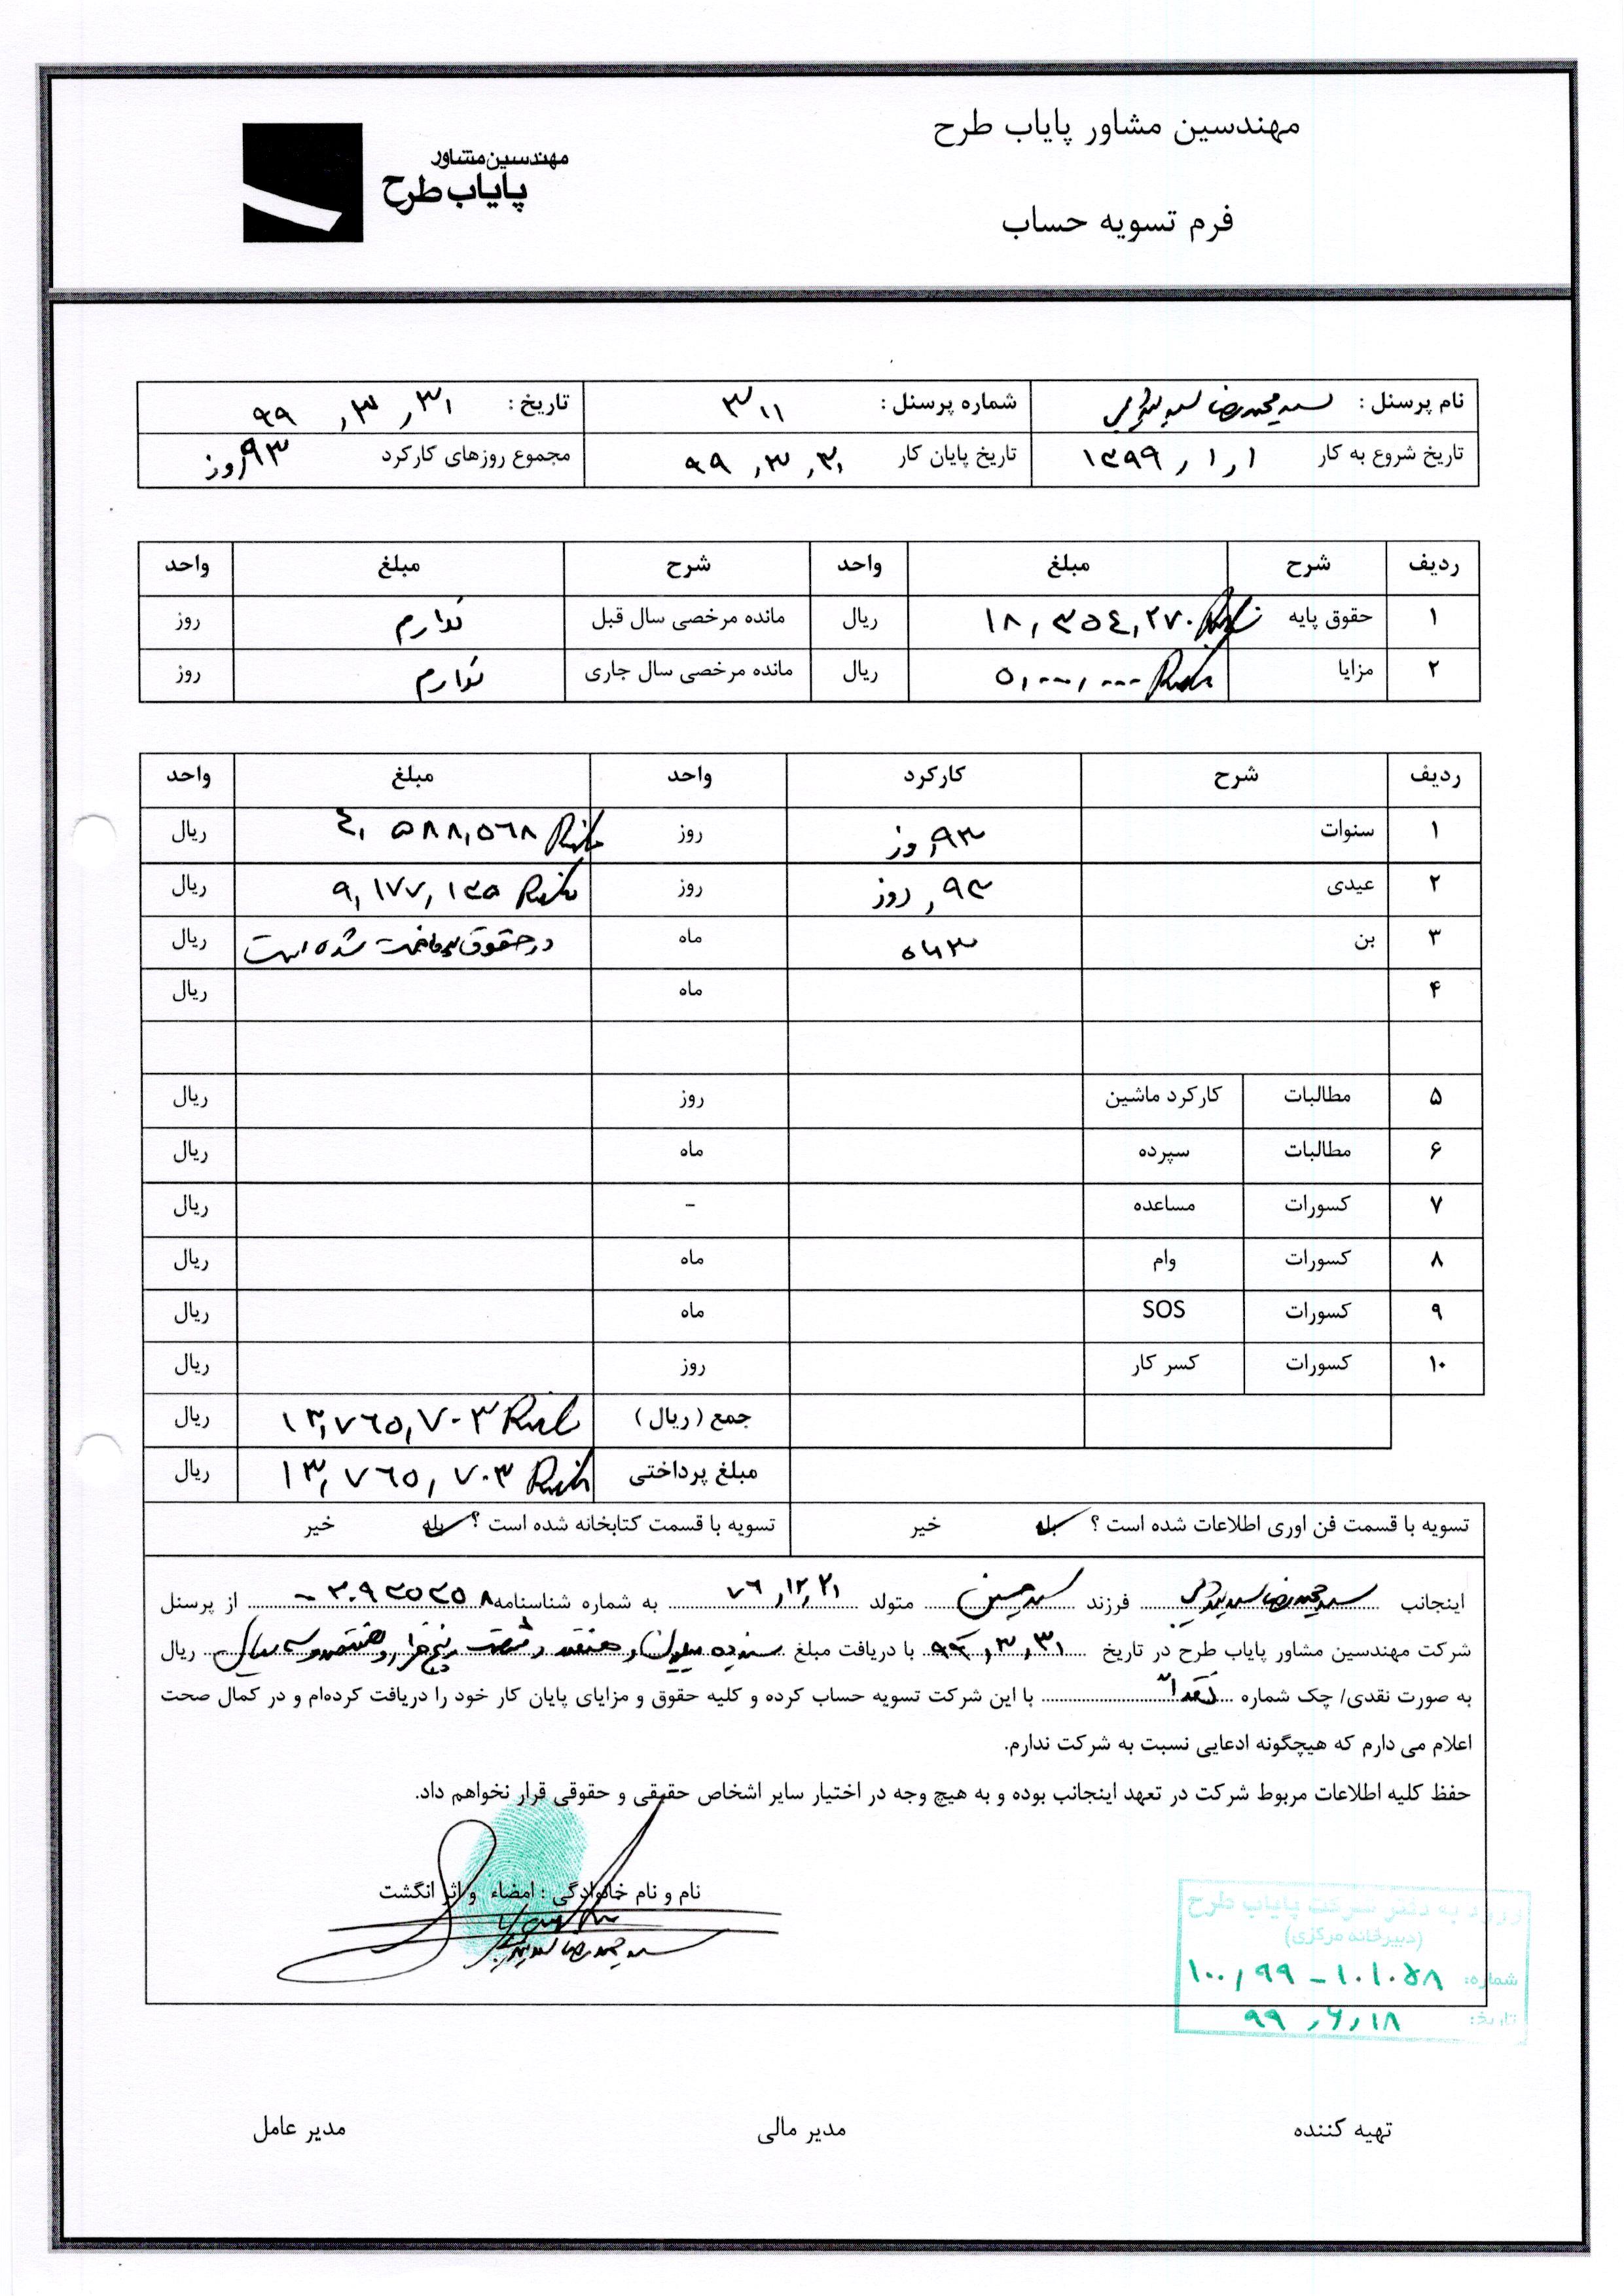 مهندسین مشاور پایاب طرح
مهندسین مشاور
پایاب طرح
فرم تسویه حساب
نام پرسنل : سید محمدرضا شماره پرسنل : ۳۱۱ تاریخ : ۹۹,۳,۳۱
تاریخ شروع به کار ۱۳۹۹,۱,۱ تاریخ پایان کار ۹۹,۳,۳۱ مجموع روزهای کارکرد ۹۳ روز
ردیف شرح مبلغ واحد شرح مبلغ واحد
۱ حقوق پایه ۱۸,۳۵٤,۲۷۰ ریال مانده مرخصی سال قبل ندارم روز
۲ مزایا ۵,۰۰۰,۰۰۰ ریال مانده مرخصی سال جاری ندارم روز
ردیف شرح کارکرد واحد مبلغ واحد
۱ سنوات ۹۳ روز روز ٤,۵۸۸,۵٦۸ ریال
۲ عیدی ۹۳ روز روز ۹,۱۷۷,۱۳۵ ریال
۳ بن ۳ ماه ماه در حقوق پرداخت شده است ریال
۴ ماه ریال
۵ مطالبات کارکرد ماشین روز ریال
۶ مطالبات سپرده ماه ریال
۷ کسورات مساعده - ریال
۸ کسورات وام ماه ریال
۹ کسورات SOS ماه ریال
۱۰ کسورات کسر کار روز ریال
جمع ( ریال ) ۱۳,۷٦۵,۷۰۳ ریال
مبلغ پرداختی ۱۳,۷٦۵,۷۰۳ ریال
تسویه با قسمت فن اوری اطلاعات شده است ؟ بله خیر تسویه با قسمت کتابخانه شده است ؟ بله خیر
اینجانب سید محمدرضا فرزند سید حسین متولد ۷٦,۱۲,۲۱ به شماره شناسنامه از پرسنل
شرکت مهندسین مشاور پایاب طرح در تاریخ ۹۹,۳,۳۱ با دریافت مبلغ سیزده میلیون و هفتصد و شصت و پنج هزار و هفتصد و سه ریال ریال
به صورت نقدی/ چک شماره نقداً با این شرکت تسویه حساب کرده و کلیه حقوق و مزایای پایان کار خود را دریافت کرده‌ام و در کمال صحت
اعلام می دارم که هیچگونه ادعایی نسبت به شرکت ندارم.
حفظ کلیه اطلاعات مربوط شرکت در تعهد اینجانب بوده و به هیچ وجه در اختیار سایر اشخاص حقیقی و حقوقی قرار نخواهم داد.
نام و نام خانوادگی : امضاء و اثر انگشت
سید محمدرضا
ورود به دفتر شرکت پایاب طرح
(دبیرخانه مرکزی)
شماره: ۱۰۰,۹۹ - ۱۰۱۰۵۸
تاریخ: ۹۹,۶,۱۸
تهیه کننده مدیر مالی مدیر عامل